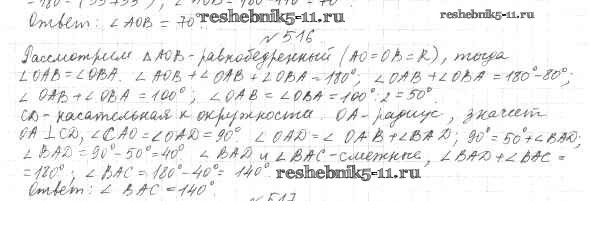 = 180° - (55°+55°); ∠AOB = 180° - 110° = 70°
Ответ: ∠AOB = 70°. reshebnik5-11.ru
№516
Рассмотрим △AOB - равнобедренный (AO=OB=R), тогда
∠OAB=∠OBA. ∠AOB+∠OAB+∠OBA=180°; ∠OAB+∠OBA=180°-80°;
∠OAB+∠OBA=100°; ∠OAB=∠OBA=100°:2=50°.
CD - касательная к окружности. OA - радиус, значит
OA⊥CD, ∠CAO=∠OAD=90° ∠OAD=∠OAB+∠BAD; 90°=50°+∠BAD;
∠BAD=90°-50°=40° ∠BAD и ∠BAC - смежные, ∠BAD+∠BAC=
=180°; ∠BAC=180°-40°=140°. reshebnik5-11.ru
Ответ: ∠BAC=140°.
№517